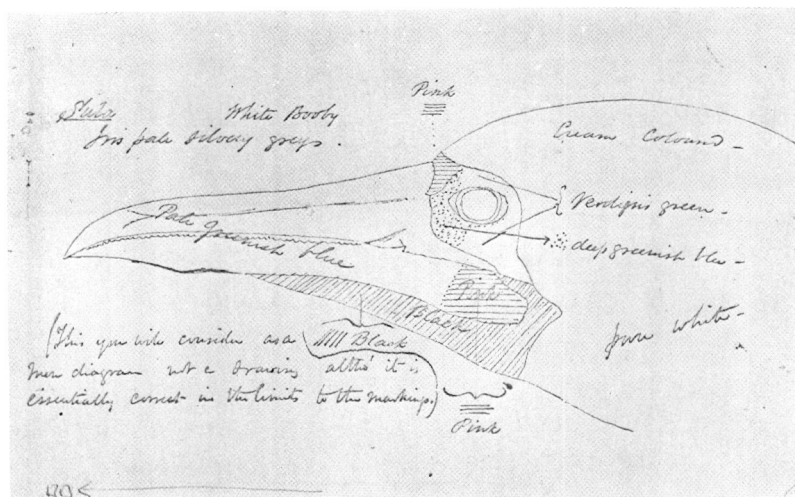 Pink
Sula White Booby
Iris pale silvery grey.
Cream Coloured
Verdigris green
Pale greenish blue
deep greenish blue
Pink
Black
pure white
(This you will consider as a
Black
mere diagram not a drawing altho' it is
essentially correct in the limits to the markings.)
Pink